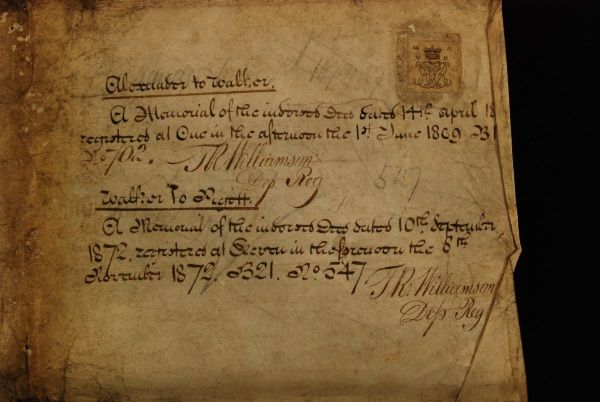 Alexander to Walker.
A Memorial of the indorsed Deed dated 14th April 18
registered at One in the afternoon the 1st June 1869 B1
No 703.
TR Williamson
Dep Reg
547
Walker to
A Memorial of the indorsed Deed dated 10th September
1872, registered at Eleven in the forenoon the 8th
November 1872. B21. No 547
TR Williamson
Dep Reg